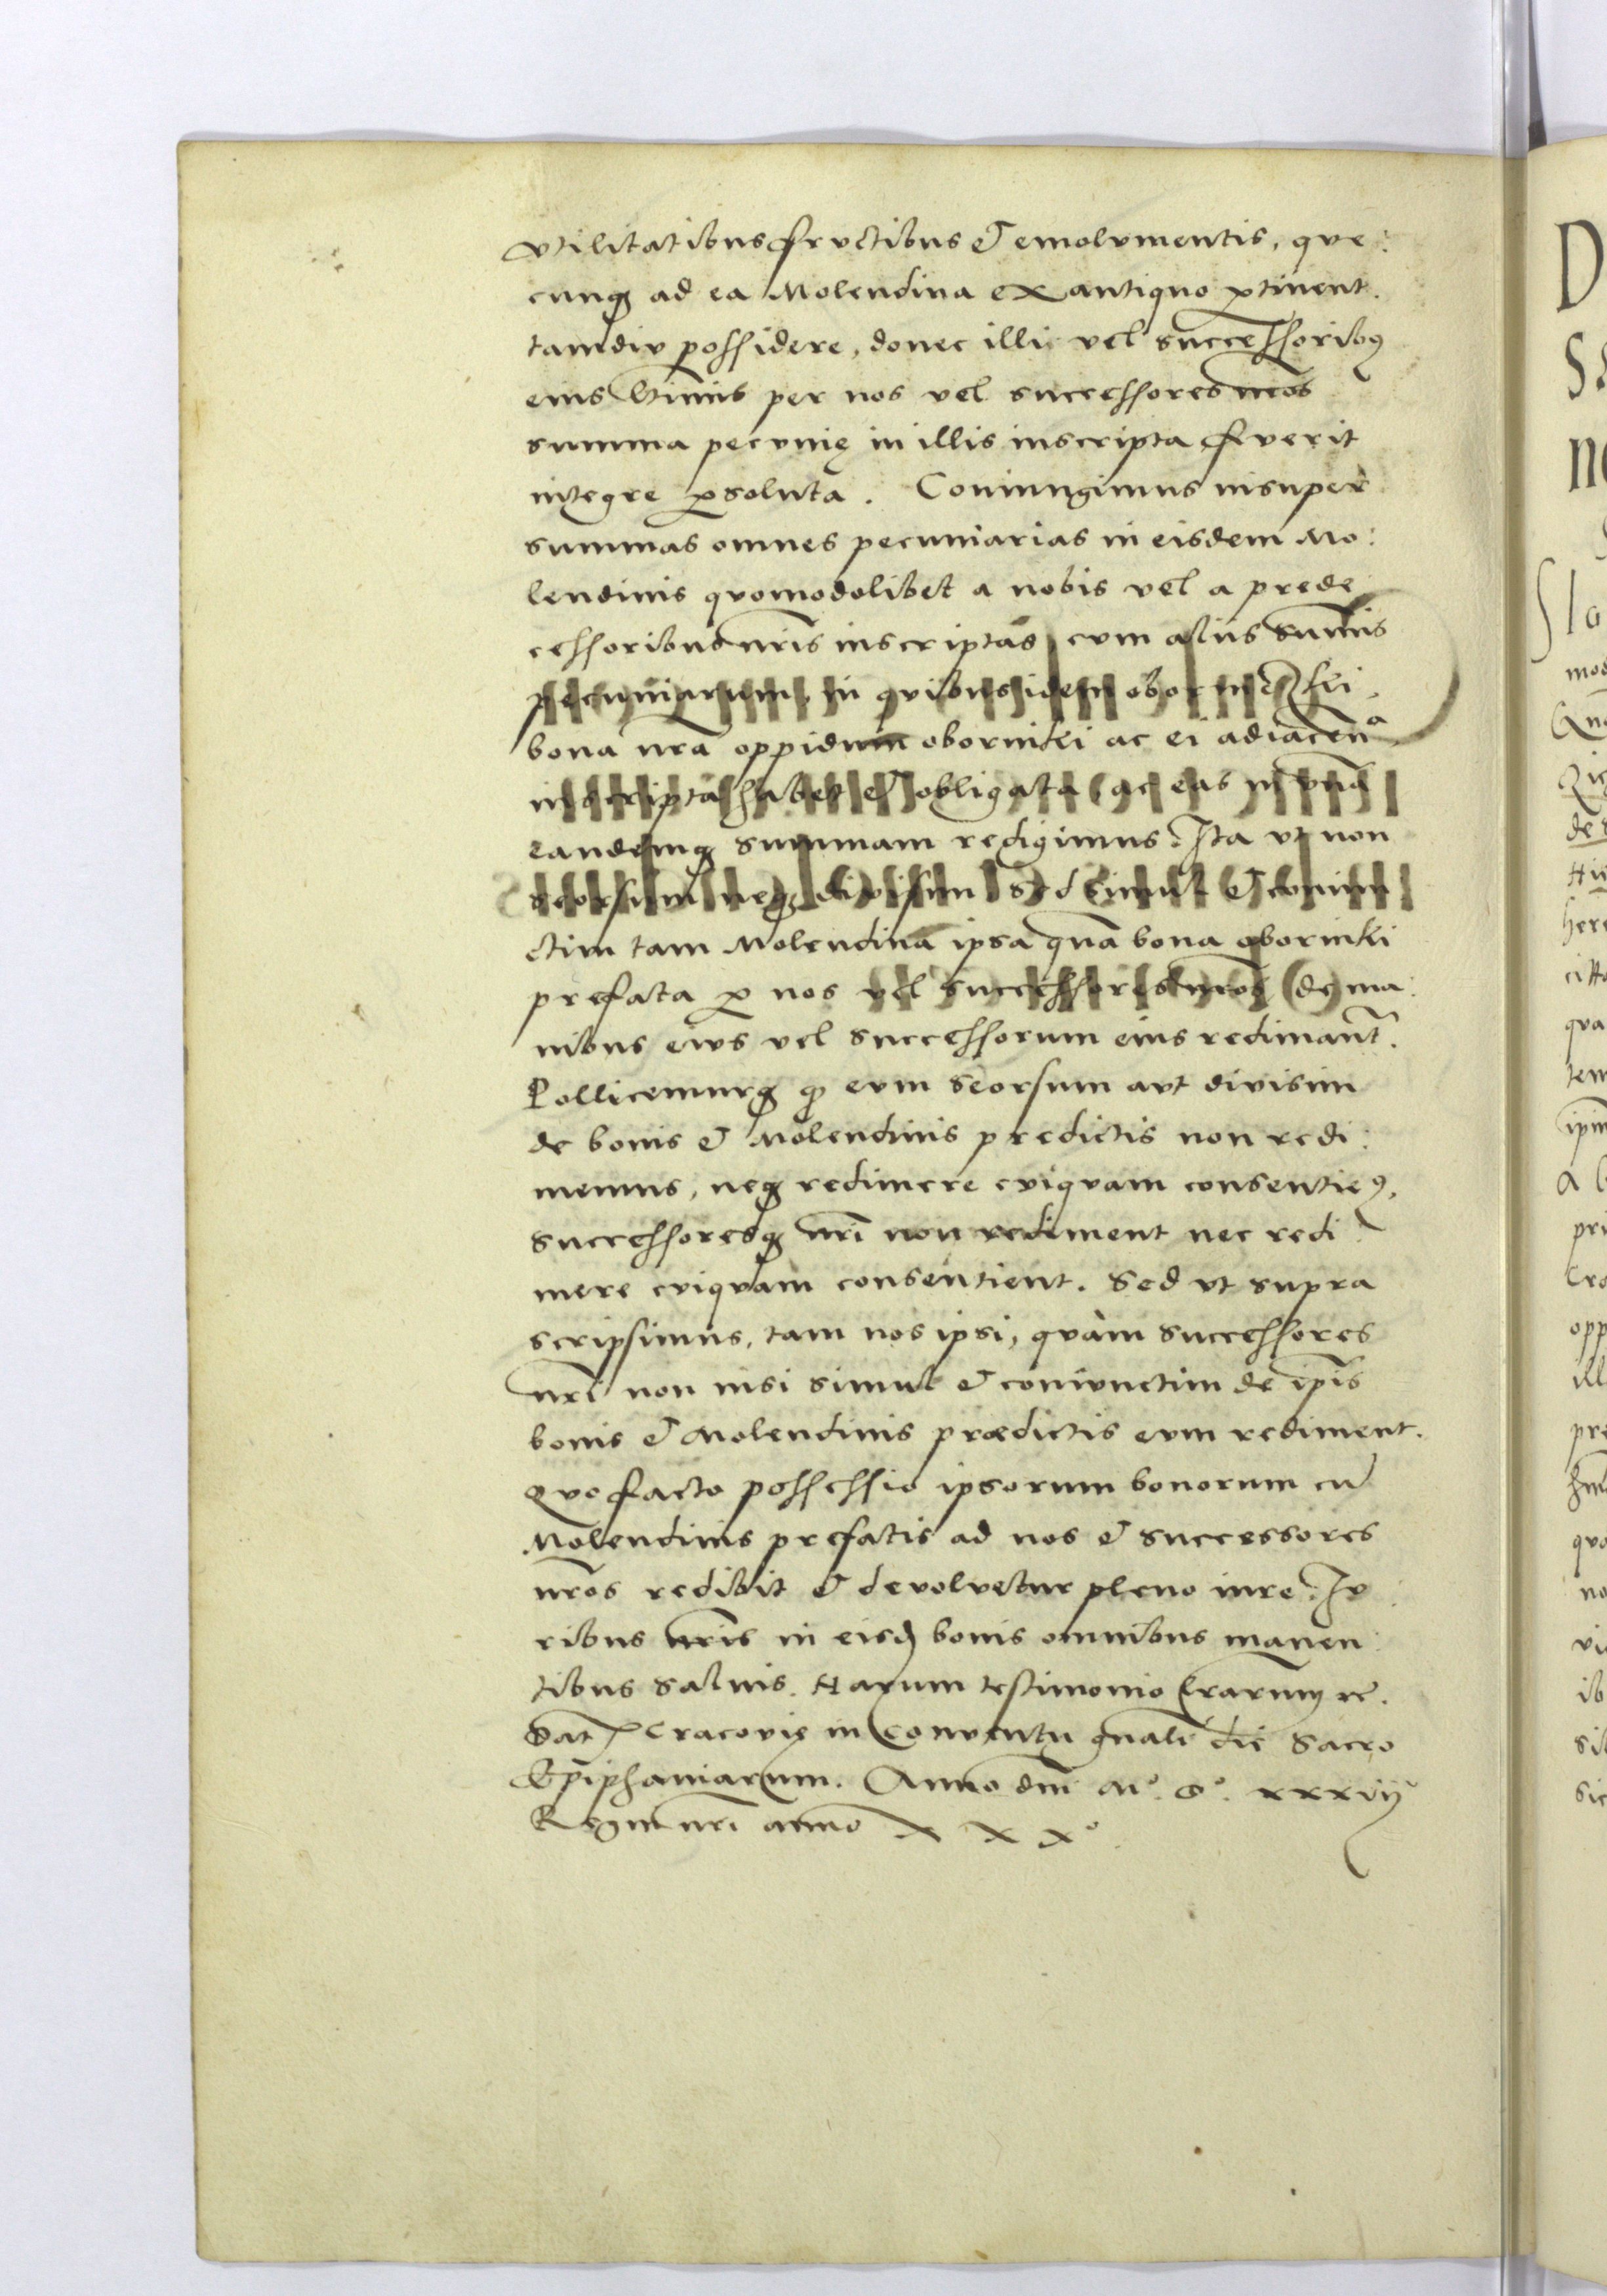 vtilitatibus fructibus & emolumentis, que:
cunqꝫ ad ea Molendina ex antiquo ꝑtinent.
tamdiu possidere, donec illi vel successoribꝰ
eius l̃timis per nos vel successores nr̃os
summa pecunię in illis inscripta fuerit
integre ꝑsoluta. Coniungimus insuper
summas omnes pecuniarias in eisdem Mo:
lendinis quomodolibet a nobis vel a prede
cessoribus nr̃is inscriptas, cum aliis sum̃is
pecuniarum, in quibus idem
bona nr̃a oppidum oborniki ac ei adiacen̄ᵃ
inscripta habet & obligata, ac eas in vnã
eandemqꝫ summam redigimus. Ita vt non
seorsum neqꝫ divisim sed simul & coniun
ctim tam Molendina ipsa quã bona oborniki
prefata ꝑ nos vel successores nr̃os de ma:
nibus eius vel successorum eius redimant̃.
Pollicemurqꝫ ꝙ eum seorsum aut divisim
de bonis & Molendinis predictis non redi:
memus, neqꝫ redimere cuiquam consentieꝰ,
successoresqꝫ nr̃i non rediment nec redi
mere cuiquam consentient. Sed vt supra
scripsimus, tam nos ipsi, quàm successores
nr̃i non nisi simul & coniunctim de ip̃is
bonis & Molendinis prædictis eum rediment.
Quo facto possessio ipsorum bonorum cũ
Molendinis prefatis ad nos & successores
nr̃os redibit & devolvetur pleno iure. Iu
ribus nr̃is in eisdꝫ bonis omnibus manen:
tibus saluis. Harum testimonio lr̃arum ꝛc̃.
Dat̃ Cracovię in Conventu gñali die Sacro
Epiphaniarum. Anno dñi M°. D°. xxxvij°
Regni nr̃i anno x x x°.